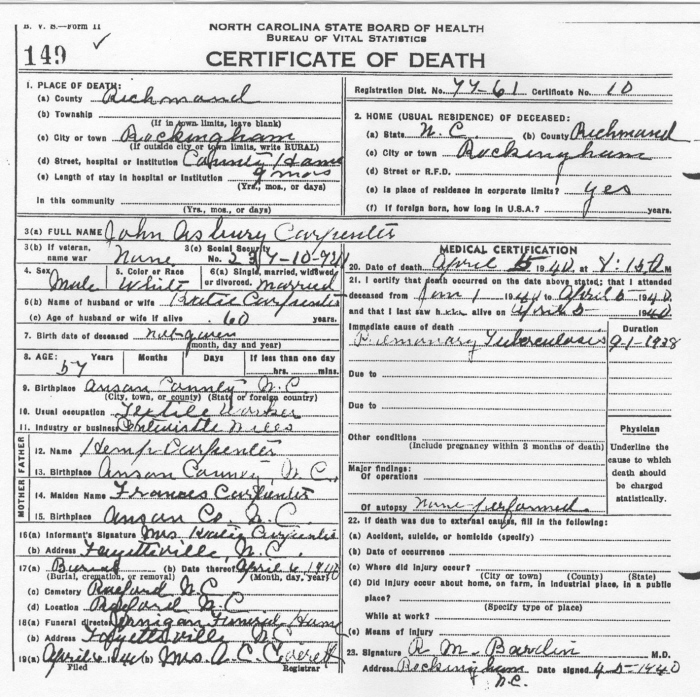 B. V. S.—Form 11
NORTH CAROLINA STATE BOARD OF HEALTH
BUREAU OF VITAL STATISTICS
149 ✓
CERTIFICATE OF DEATH
1. PLACE OF DEATH:
(a) County Richmond
(b) Township
(If in town limits, leave blank)
(c) City or town Rockingham
(If outside city or town limits, write RURAL)
(d) Street, hospital or institution County Home
(e) Length of stay in hospital or institution 9 mos
(Yrs., mos., or days)
In this community
(Yrs., mos., or days)
Registration Dist. No. 77-61 Certificate No. 10
2. HOME (USUAL RESIDENCE) OF DECEASED:
(a) State N.C. (b) County Richmond
(c) City or town Rockingham
(d) Street or R.F.D.
(e) Is place of residence in corporate limits? yes
(f) If foreign born, how long in U.S.A.? years.
3(a) FULL NAME John Asbury Carpenter
3(b) If veteran, name war None
3(c) Social Security No.
4. Sex Male
5. Color or Race White
6(a) Single, married, widowed or divorced. married
6(b) Name of husband or wife Carpenter
(c) Age of husband or wife if alive 60 years.
7. Birth date of deceased not given
(month, day and year)
8. AGE: Years Months Days If less than one day
57 hrs. mins.
9. Birthplace Anson County N.C
(City, town, or county) (State or foreign country)
10. Usual occupation Textile Worker
11. Industry or business Entwistle Mills
FATHER
12. Name Hemp Carpenter
13. Birthplace Anson County, N.C.
MOTHER
14. Maiden Name Frances Carpenter
15. Birthplace Anson Co. N.C
16(a) Informant's Signature Mrs Carpenter
(b) Address Fayetteville, N.C.
17(a) Burial (b) Date thereof April 6, 1940
(Burial, cremation, or removal) (Month, day, year)
(c) Cemetery Raeford N.C
(d) Location Raeford N.C
18(a) Funeral director Jernigan Funeral Home
(b) Address Fayetteville N.C
19(a) April 6 1940 (b) Mrs. A. C. Everett
Filed Registrar
MEDICAL CERTIFICATION
20. Date of death April 5 1940 at M
21. I certify that death occurred on the date above stated; that I attended
deceased from Jan 1 1940 to April 5 1940
and that I last saw h alive on April 5 1940
Immediate cause of death Duration
Pulmonary Tuberculosis 9-1-1938
Due to
Due to
Other conditions
(Include pregnancy within 3 months of death)
Major findings:
Of operations
Of autopsy None performed
Physician
Underline the cause to which death should be charged statistically.
22. If death was due to external causes, fill in the following:
(a) Accident, suicide, or homicide (specify)
(b) Date of occurrence
(c) Where did injury occur?
(City or town) (County) (State)
(d) Did injury occur about home, on farm, in industrial place, in a public
place?
(Specify type of place)
While at work?
(e) Means of injury
23. Signature R. M. Bardin M.D.
Address Rockingham N.C. Date signed 4-5-1940